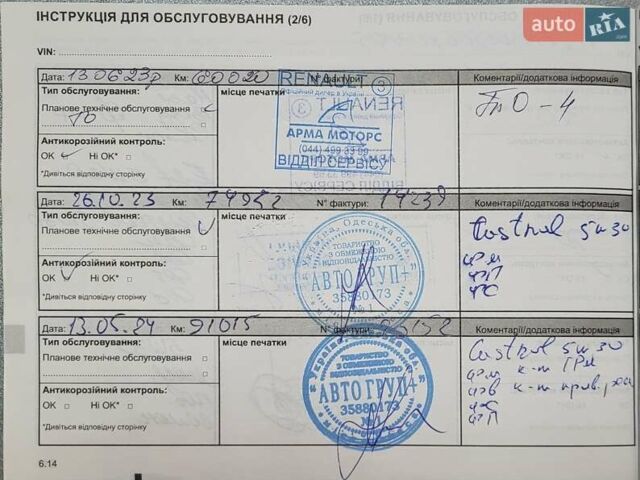 ІНСТРУКЦІЯ ДЛЯ ОБСЛУГОВУВАННЯ (2/6)
auto RIA
VIN:
Дата: 13.06.23р Км: 60020 № фактури:
Коментарі/додаткова інформація
Тип обслуговування:
місце печатки
Планове технічне обслуговування
ТО
Антикорозійний контроль:
ОК Ні ОК*
*Дивіться відповідну сторінку
RENAULT
офіційний дилер в Україні
3
АРМА МОТОРС
(044) 499 39 89
ВІДДІЛ СЕРВІСУ
ПТО - 4
Дата: 26.10.23 Км: 74952 № фактури: 14239
Коментарі/додаткова інформація
Тип обслуговування:
місце печатки
Планове технічне обслуговування
Антикорозійний контроль:
ОК Ні ОК*
*Дивіться відповідну сторінку
Україна, Одеська обл.
ТОВАРИСТВО
З ОБМЕЖЕНОЮ
ВІДПОВІДАЛЬНІСТЮ
"АВТОГРУП+"
35880173
№ 1
Castrol 5w30
Дата: 13.05.24 Км: 91015 № фактури:
Коментарі/додаткова інформація
Тип обслуговування:
місце печатки
Планове технічне обслуговування
Антикорозійний контроль:
ОК Ні ОК*
*Дивіться відповідну сторінку
ТОВАРИСТВО
З ОБМЕЖЕНОЮ
ВІДПОВІДАЛЬНІСТЮ
"АВТОГРУП+"
35880173
№ 1
Castrol 5w30
к-т ГРМ
к-т
6.14